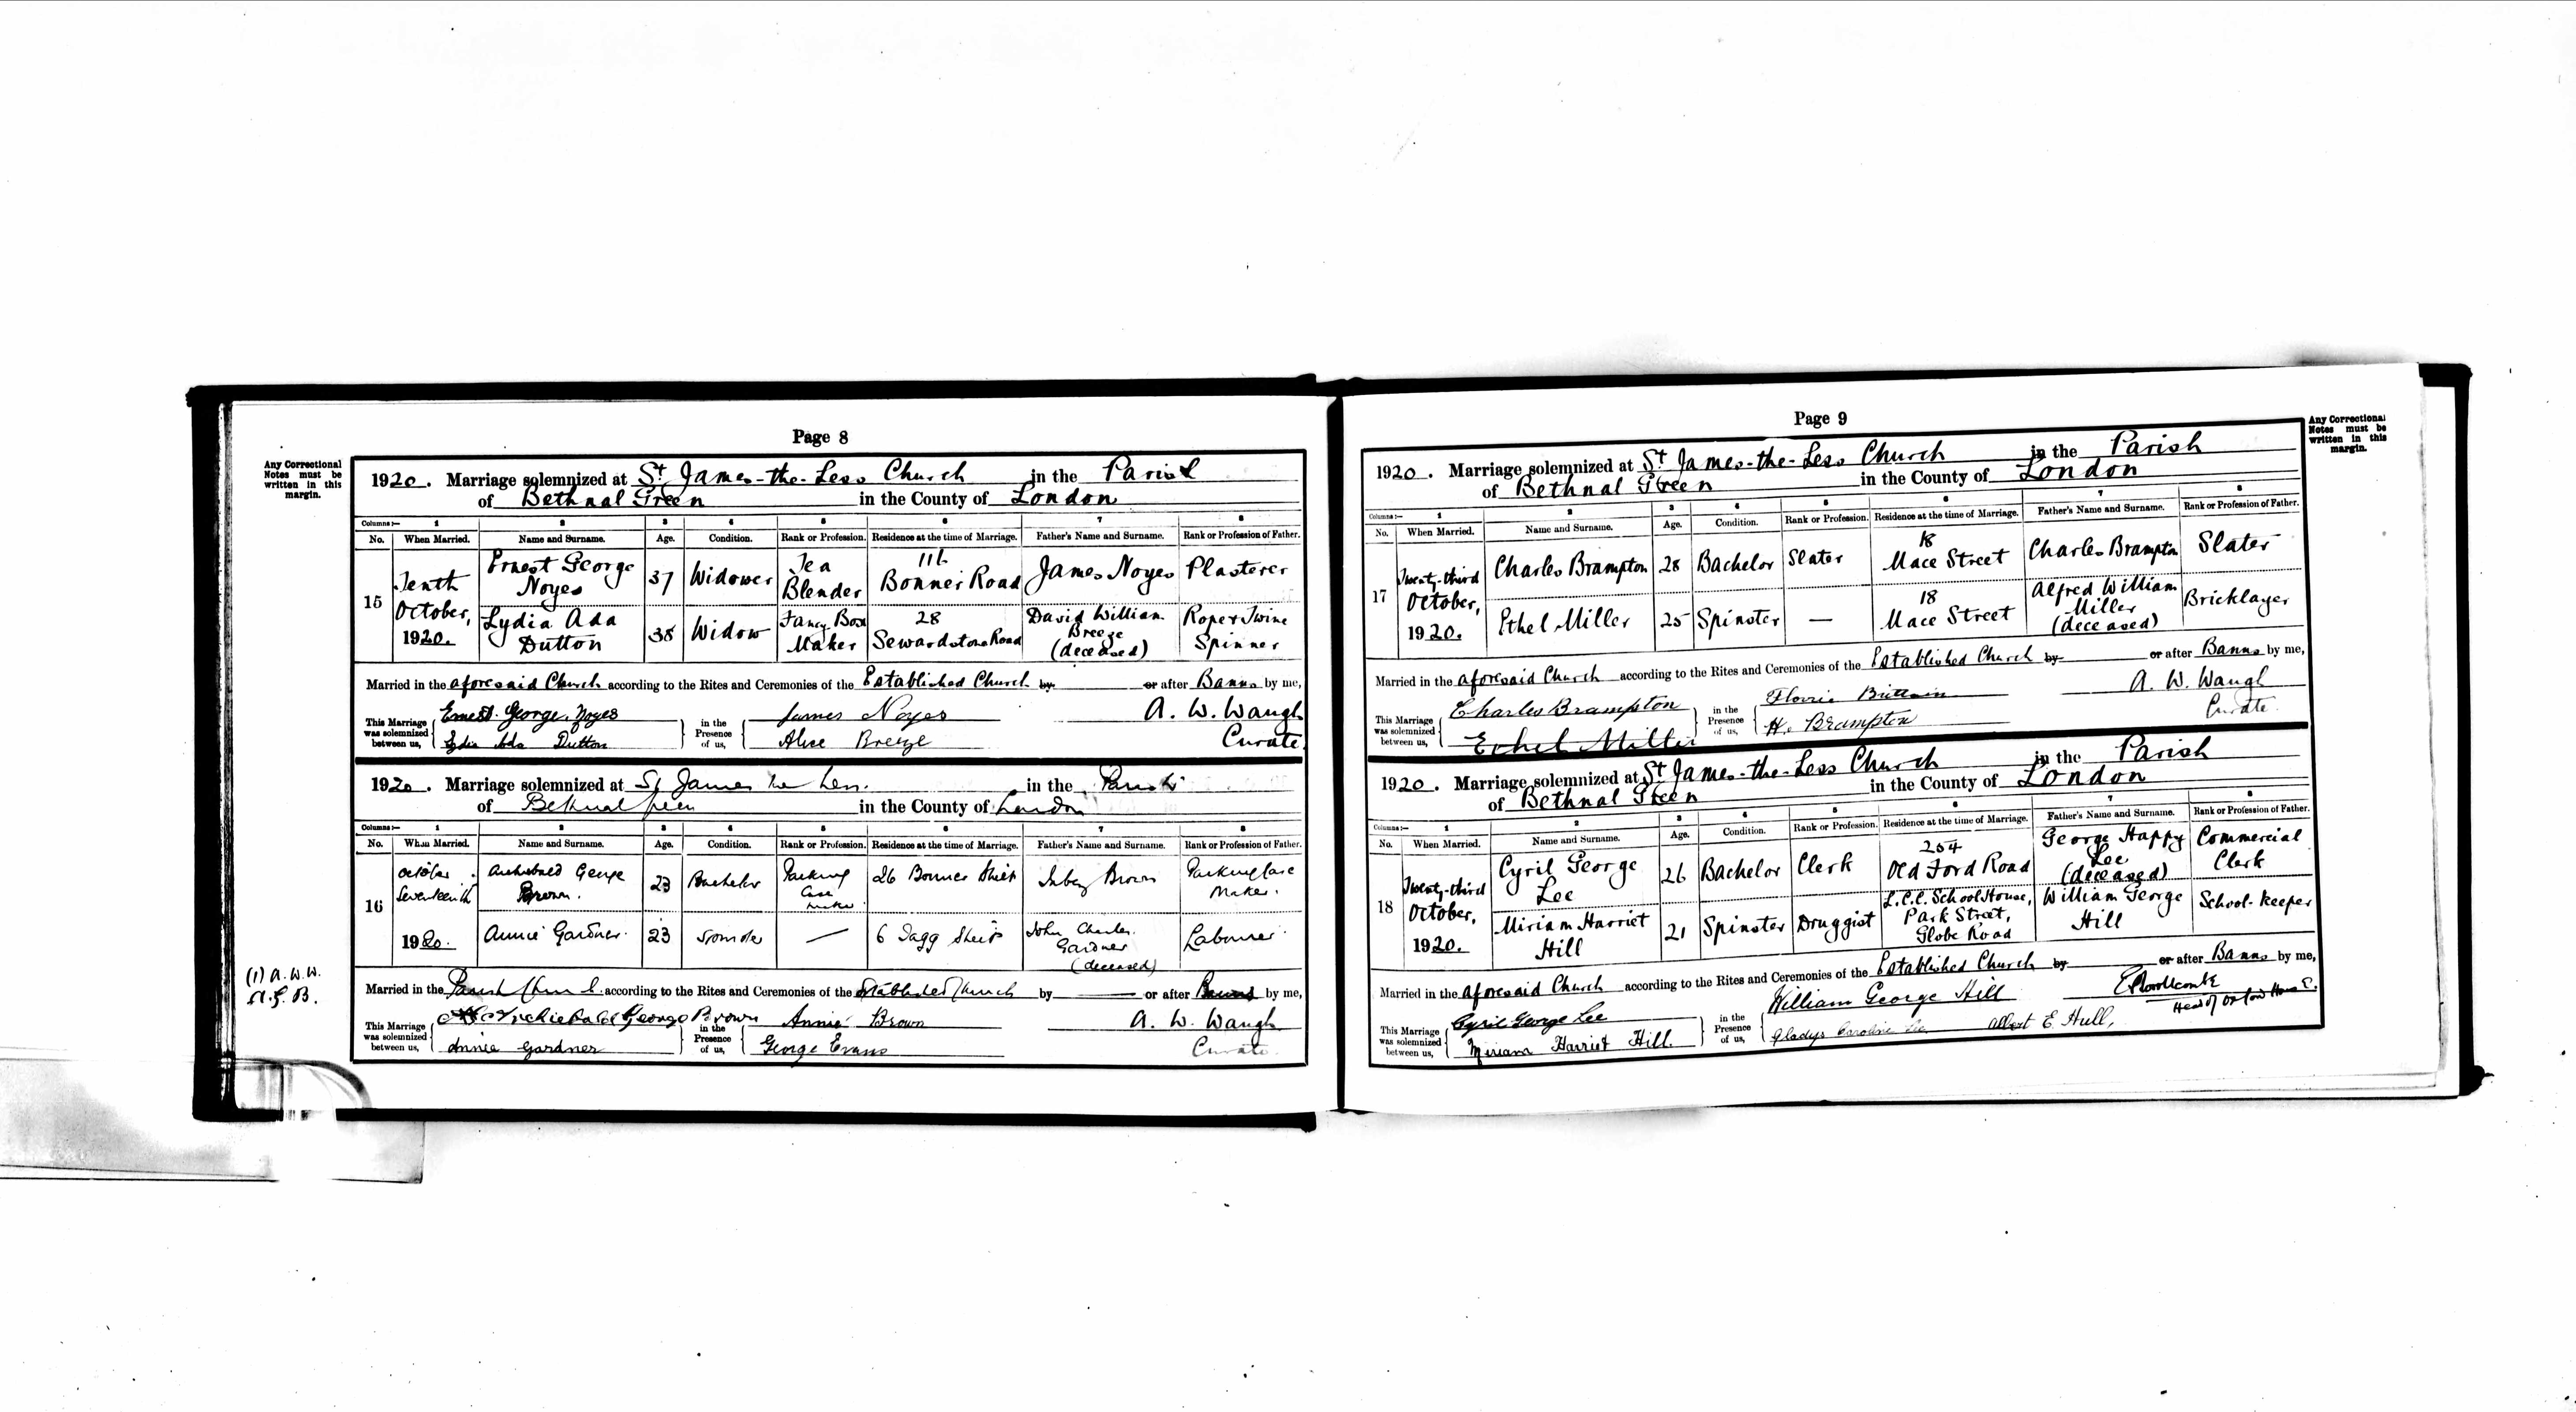 Page 8
Any Correctional
Notes must be
written in this
margin.
1920. Marriage solemnized at St James-the-Less Church in the Parish
of Bethnal Green in the County of London
Columns:— 1 2 3 4 5 6 7 8
No. When Married. Name and Surname. Age. Condition. Rank or Profession. Residence at the time of Marriage. Father's Name and Surname. Rank or Profession of Father.
15 Tenth October, 1920. Ernest George Noyes 37 Widower Tea Blender Bonner Road James Noyes Plasterer
Lydia Ada Dutton 38 Widow Fancy Box Maker 28 Sewardstone Road David William Breeze (deceased) Rope & Twine Spinner
Married in the aforesaid Church according to the Rites and Ceremonies of the Established Church by or after Banns by me,
This Marriage was solemnized between us, Ernest George Noyes Lydia Ada Dutton in the Presence of us, James Noyes Alice Breeze A. W. Waugh Curate
1920. Marriage solemnized at St James the Less. in the Parish
of Bethnal Green in the County of London
Columns:— 1 2 3 4 5 6 7 8
No. When Married. Name and Surname. Age. Condition. Rank or Profession. Residence at the time of Marriage. Father's Name and Surname. Rank or Profession of Father.
16 October Seventeenth 1920. Archibald George Brown. 23 Bachelor Packing Case Maker 26 Bonner Street Brown Packing Case Maker.
Annie Gardner. 23 Spinster — 6 Tagg Street John Charles Gardner (deceased) Labourer
(1) A.W.W.
A.G.B.
Married in the Parish Church according to the Rites and Ceremonies of the Established Church by or after Banns by me,
This Marriage was solemnized between us, Archiebald George Brown Annie Gardner in the Presence of us, Annie Brown George Evans A. W. Waugh Curate
Page 9
Any Correctional
Notes must be
written in this
margin.
1920. Marriage solemnized at St James-the-Less Church in the Parish
of Bethnal Green in the County of London
Columns:— 1 2 3 4 5 6 7 8
No. When Married. Name and Surname. Age. Condition. Rank or Profession. Residence at the time of Marriage. Father's Name and Surname. Rank or Profession of Father.
17 Twenty-third October, 1920. Charles Brampton 28 Bachelor Slater 18 Mace Street Charles Brampton Slater
Ethel Miller 25 Spinster — 18 Mace Street Alfred William Miller (deceased) Bricklayer
Married in the aforesaid Church according to the Rites and Ceremonies of the Established Church by or after Banns by me,
This Marriage was solemnized between us, Charles Brampton Ethel Miller in the Presence of us, Florrie Brittain H. Brampton A. W. Waugh Curate.
1920. Marriage solemnized at St James-the-Less Church in the Parish
of Bethnal Green in the County of London
Columns:— 1 2 3 4 5 6 7 8
No. When Married. Name and Surname. Age. Condition. Rank or Profession. Residence at the time of Marriage. Father's Name and Surname. Rank or Profession of Father.
18 Twenty-third October, 1920. Cyril George Lee 26 Bachelor Clerk 254 Old Ford Road George Happy Lee (deceased) Commercial Clerk
Miriam Harriet Hill 21 Spinster Druggist L.C.C. School House, Park Street, Globe Road William George Hill School-keeper
Married in the aforesaid Church according to the Rites and Ceremonies of the Established Church by or after Banns by me,
This Marriage was solemnized between us, Cyril George Lee Miriam Harriet Hill in the Presence of us, William George Hill Gladys Caroline Lee Albert E. Hull, Head of Oxford House